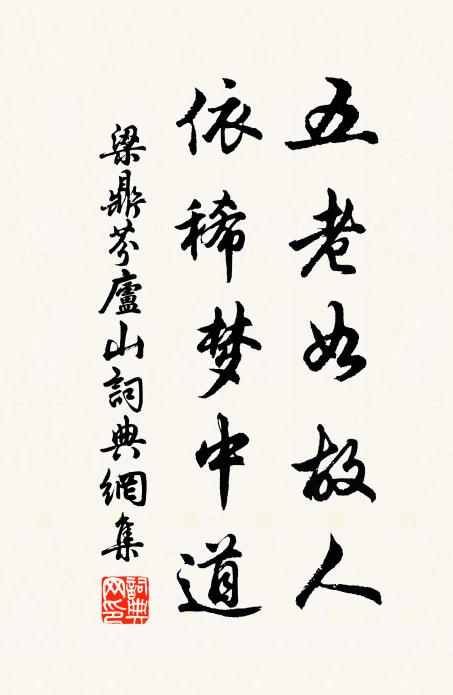 五老如故人
依稀梦中道
梁鼎芬廬山詞典網集
詞典網印